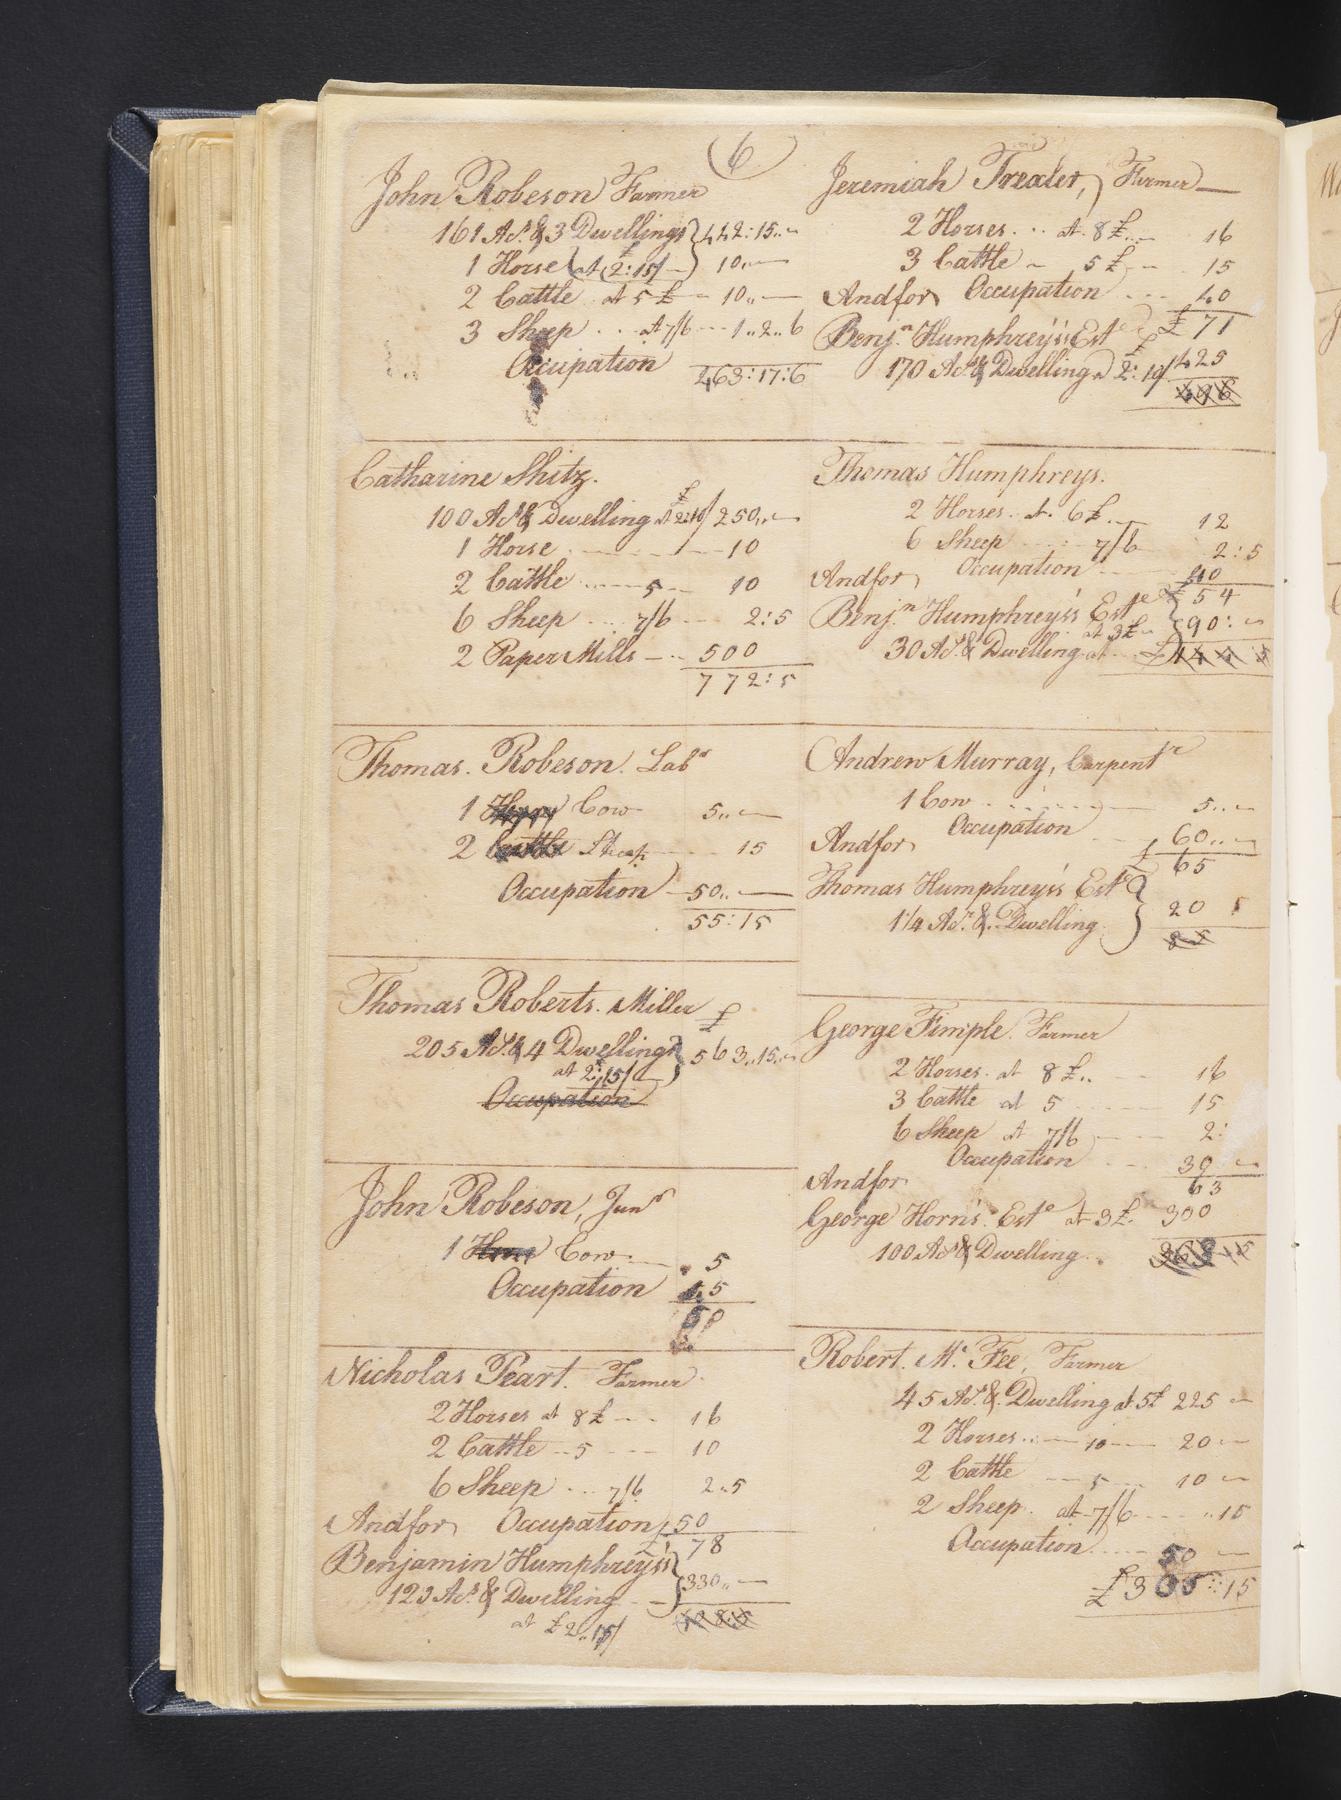 6
John Robeson Farmer
161 Ars. & 3 Dwellings 442:15..
1 Horse at £2:15/ 10..
2 Cattle at 5£ 10..
3 Sheep at 7/6 1..2..6
Occupation
463:17:6
Catharine Shitz.
100 Ars. & Dwelling at £2:10/ 250..
1 Horse 10
2 Cattle 5 10
6 Sheep 7/6 2:5
2 Paper Mills 500
772:5
Thomas. Robeson. Labr
1 Cow 5..
2 Sheep 15
Occupation 50..
55:15
Thomas Roberts. Miller
205 Ars. & 4 Dwellings £563..15..
at 2:15/
Occupation
John Robeson, Junr
1 Cow 5
Occupation 45
50
Nicholas Peart. Farmer
2 Horses at 8£ 16
2 Cattle 5 10
6 Sheep 7/6 2..5
And for Occupation 50
£78
Benjamin Humphreys's
123 Ars. & Dwelling 330..
at £2..15/
Jeremiah Trexler, Farmer
2 Horses at 8£ 16
3 Cattle 5£ 15
And for Occupation 40
£71
Benj.n Humphreys's Este
170 Ars. & Dwelling a £2:10/ 425
496
Thomas Humphreys.
2 Horses at 6£ 12
6 Sheep 7/6 2:5
And for Occupation 40
£54
Benj.n Humphreys's Este
at 3£ 90:
30 Ars. & Dwelling at
Andrew Murray, Carpentr
1 Cow 5..
Occupation 60..
And for
£65
Thomas Humphreys's Este
1 1/4 Ar. & Dwelling 20
85
George Fimple. Farmer
2 Horses at 8£.. 16
3 Cattle at 5 15
6 Sheep at 7/6 2:
Occupation 30
And for 63
George Horn's Este at 3£. 300
100 Ars. & Dwelling
Robert. Mc. Fee, Farmer
45 Ars. & Dwelling at 5£ 225
2 Horses 10 20
2 Cattle 5 10
2 Sheep at 7/6 ..15
Occupation 50
£305:15